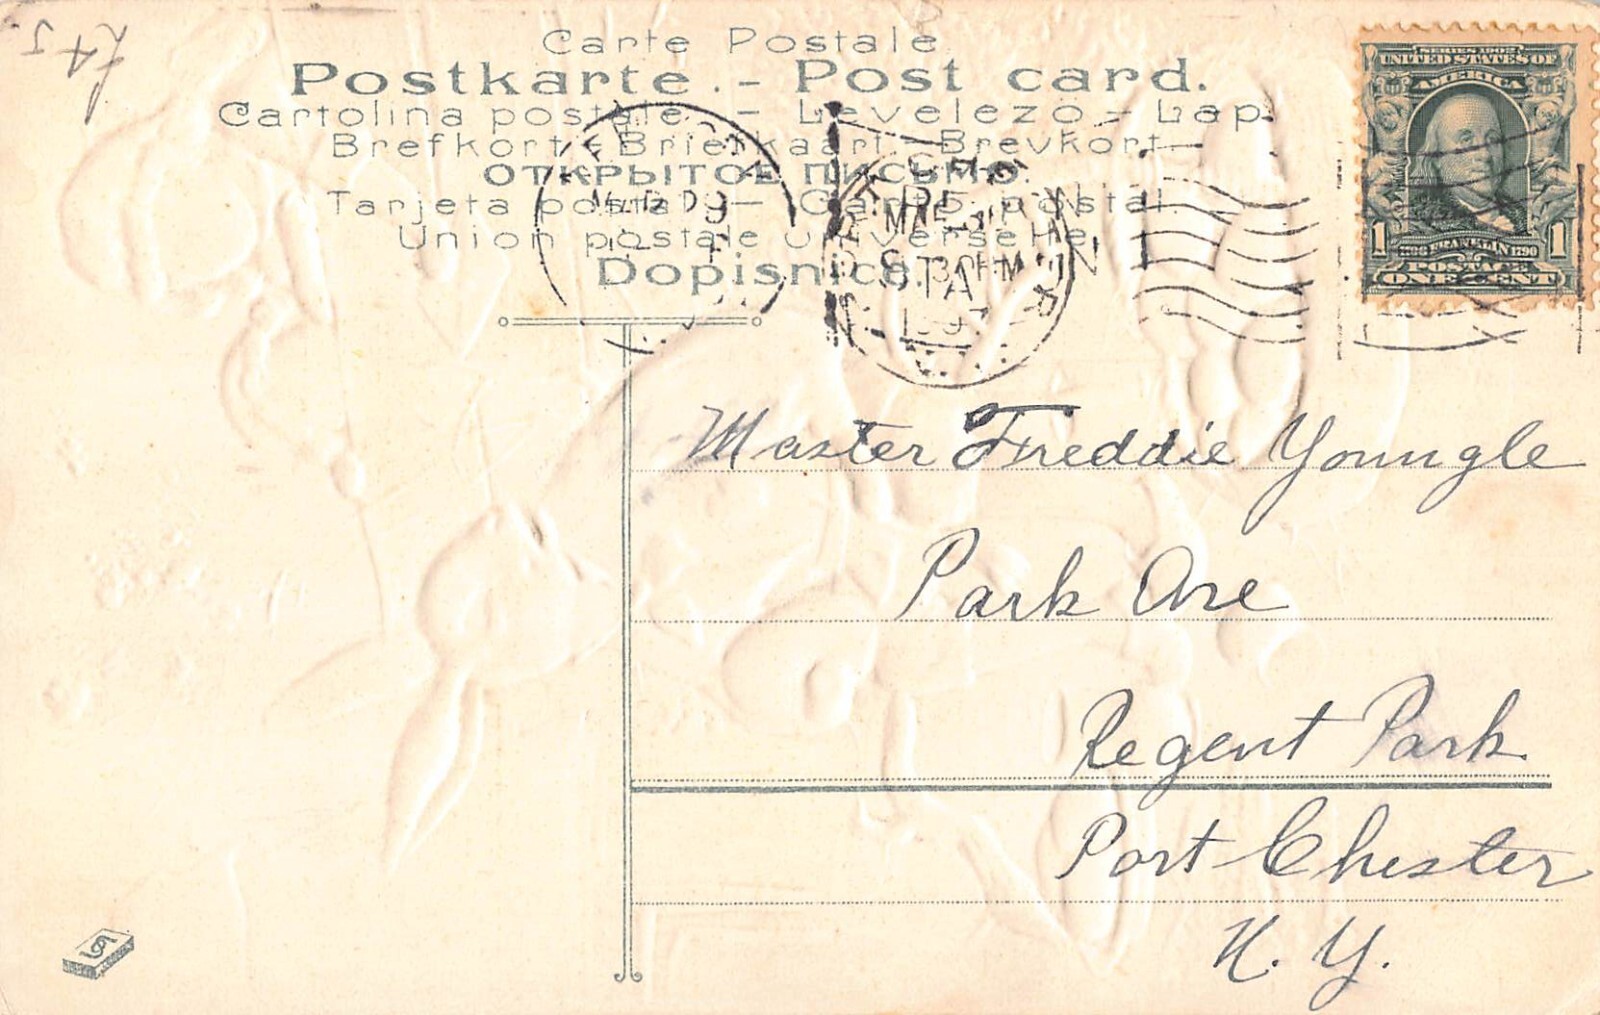 Carte Postale
Postkarte.- Post card.
Cartolina postale. - Levelező - Lap.
Brefkort - Briefkaart. - Brevkort.-
ОТКРЫТОЕ ПИСЬМО.
Tarjeta postal - Carte postal.
Union postale universelle
Dopisnice.
SERIES 1902
UNITED STATES OF
AMERICA
1 1790 FRANKLIN 1790 1
POSTAGE
ONE CENT
STA
Master Freddie Youngle
Park Ave
Regent Park
Port Chester
N. Y.